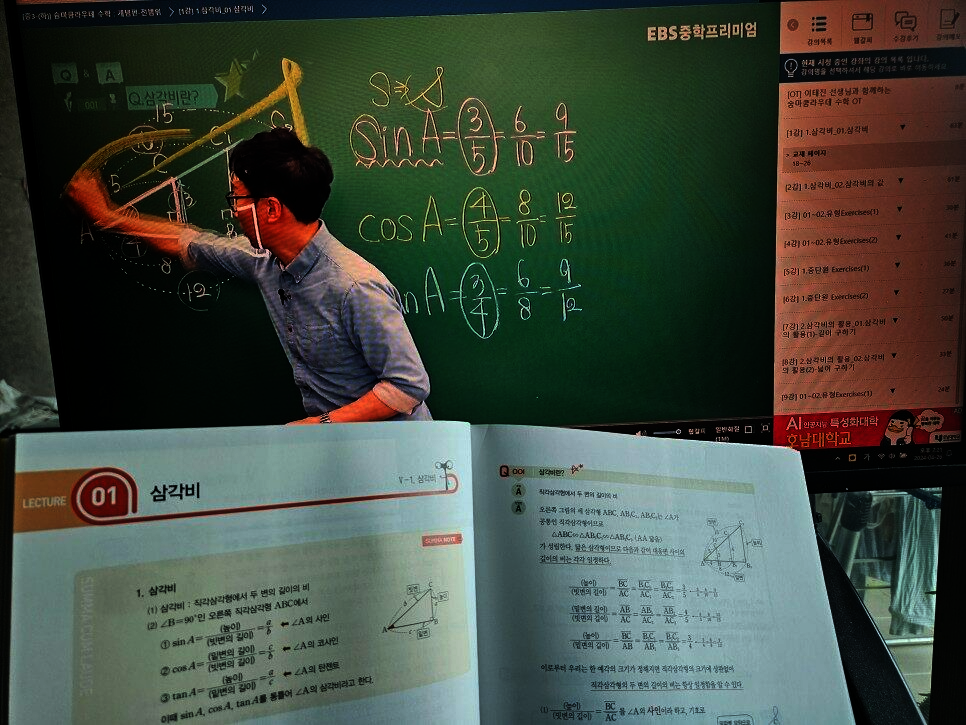 [중3-(하)] 숨마쿰라우데 수학 - 개념편 전범위 > [1강] 1.삼각비_01.삼각비
EBS중학프리미엄
Q & A
Q.삼각비란?
15
5
3
8
12
A
S
Sin A = 3/5 = 6/10 = 9/15
cos A = 4/5 = 8/10 = 12/15
n A = 3/4 = 6/8 = 9/12
강의목록
책갈피
수강후기
강의메모
현재 시청 중인 강좌의 강의 목록 입니다.
[OT] 이태진 선생님과 함께하는
숨마쿰라우데 수학 OT
[1강] 1.삼각비_01.삼각비
교재 페이지
18~26
[2강] 1.삼각비_02.삼각비의 값
[3강] 01~02.유형Exercises(1)
[4강] 01~02.유형Exercises(2)
[5강] 1.중단원 Exercises(1)
[6강] 1.중단원 Exercises(2)
[7강] 2.삼각비의 활용_01.삼각비
의 활용(1)-길이 구하기
[8강] 2.삼각비의 활용_02.삼각비
의 활용(2)-넓이 구하기
[9강] 01~02.유형Exercises(1)
AI 특성화대학
호남대학교
LECTURE 01 삼각비
V-1. 삼각비
SUMMA NOTE
SUMMA CUM LAUDE
1. 삼각비
(1) 삼각비 : 직각삼각형에서 두 변의 길이의 비
(2) ∠B=90°인 오른쪽 직각삼각형 ABC에서
① sin A = (높이)/(빗변의 길이) = a/b ← ∠A의 사인
② cos A = (밑변의 길이)/(빗변의 길이) = c/b ← ∠A의 코사인
③ tan A = (높이)/(밑변의 길이) = a/c ← ∠A의 탄젠트
이때 sin A, cos A, tan A를 통틀어 ∠A의 삼각비라고 한다.
Q 001 삼각비란?
A 직각삼각형에서 두 변의 길이의 비
A 오른쪽 그림의 세 삼각형 ABC, AB₁C₁, AB₂C₂는 ∠A가
공통인 직각삼각형이므로
△ABC∽△AB₁C₁∽△AB₂C₂ (AA 닮음)
가 성립한다. 닮은 삼각형이므로 다음과 같이 대응변 사이의
길이의 비는 각각 일정하다.
(높이)/(빗변의 길이) = BC/AC = B₁C₁/AC₁ = B₂C₂/AC₂ = 3/5
(밑변의 길이)/(빗변의 길이) = AB/AC = AB₁/AC₁ = AB₂/AC₂ = 4/5
(높이)/(밑변의 길이) = BC/AB = B₁C₁/AB₁ = B₂C₂/AB₂ = 3/4
이로부터 우리는 한 예각의 크기가 정해지면 직각삼각형의 크기에 상관없이
직각삼각형의 두 변의 길이의 비는 항상 일정함을 알 수 있다.
(1) (높이)/(빗변의 길이) = BC/AC 를 ∠A의 사인이라 하고, 기호로